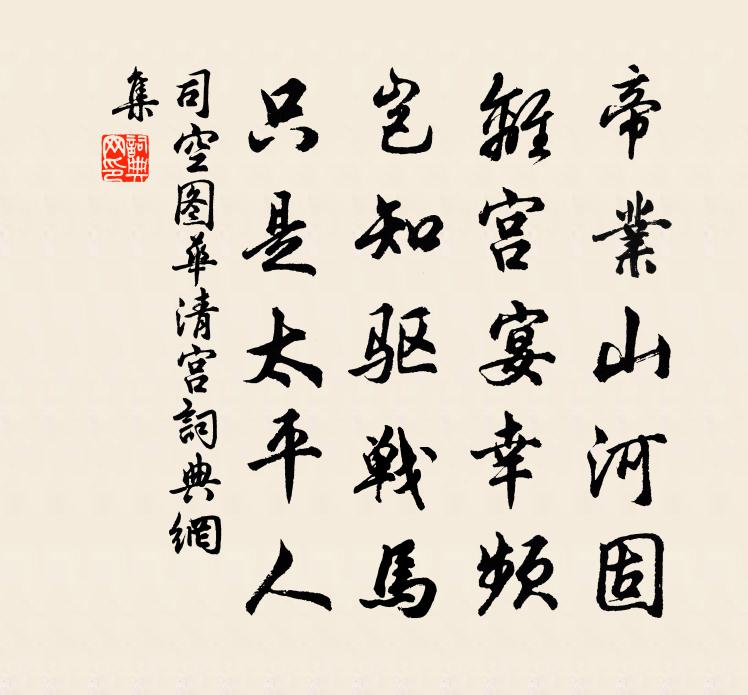 帝業山河固
離宮宴幸頻
豈知驅戰馬
只是太平人
司空图華清宮詞典網
集
詞典
网印